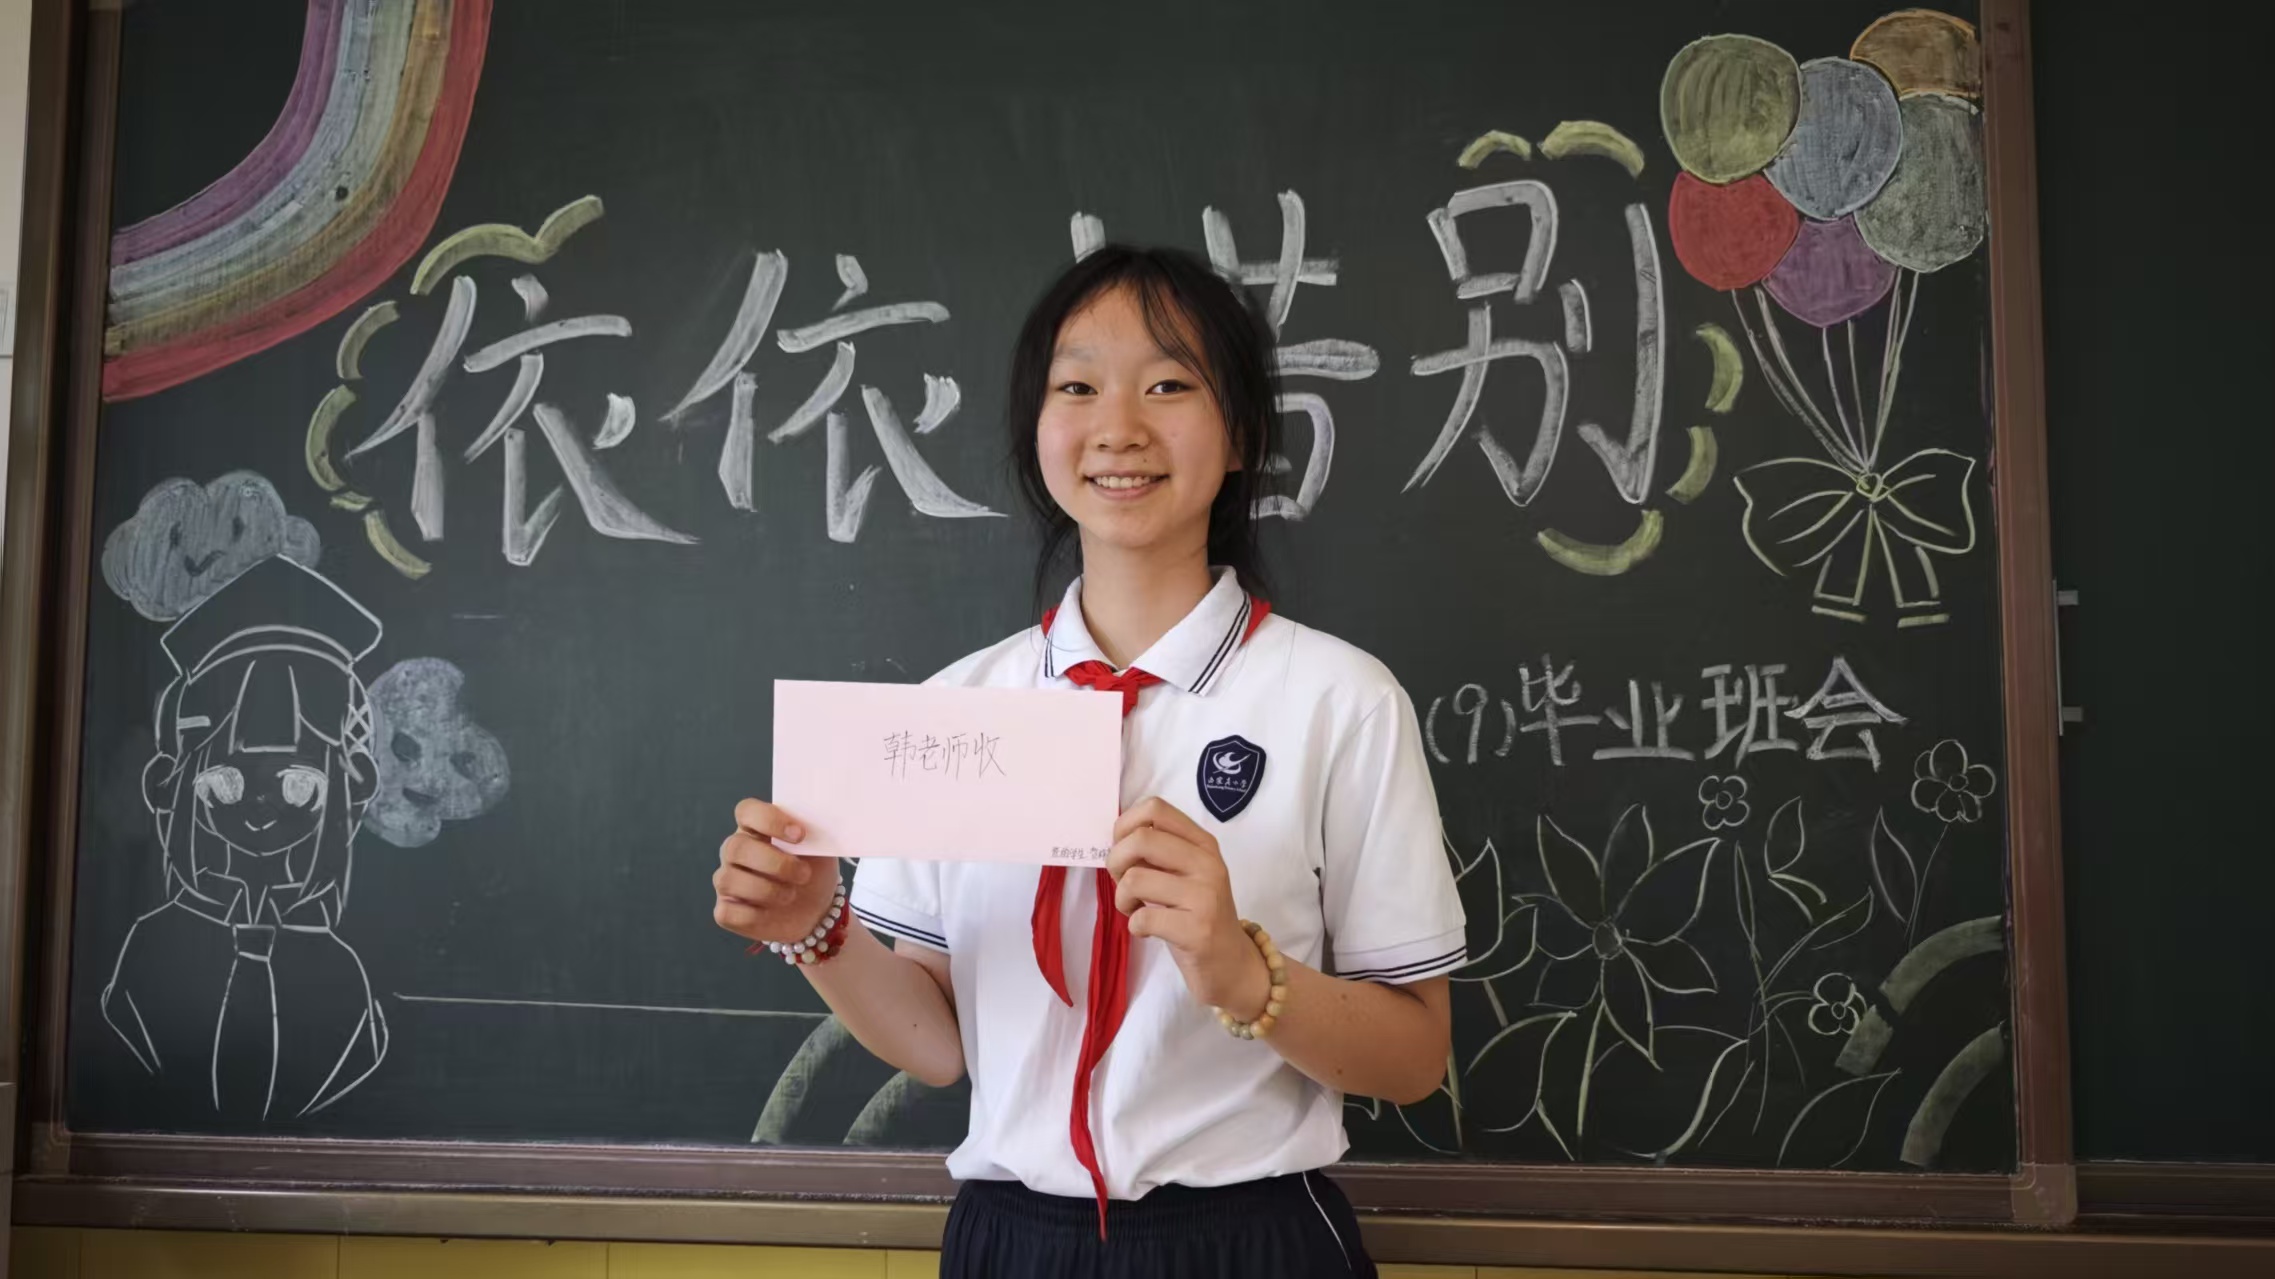 依依惜别
(9)毕业班会
韩老师收
小学